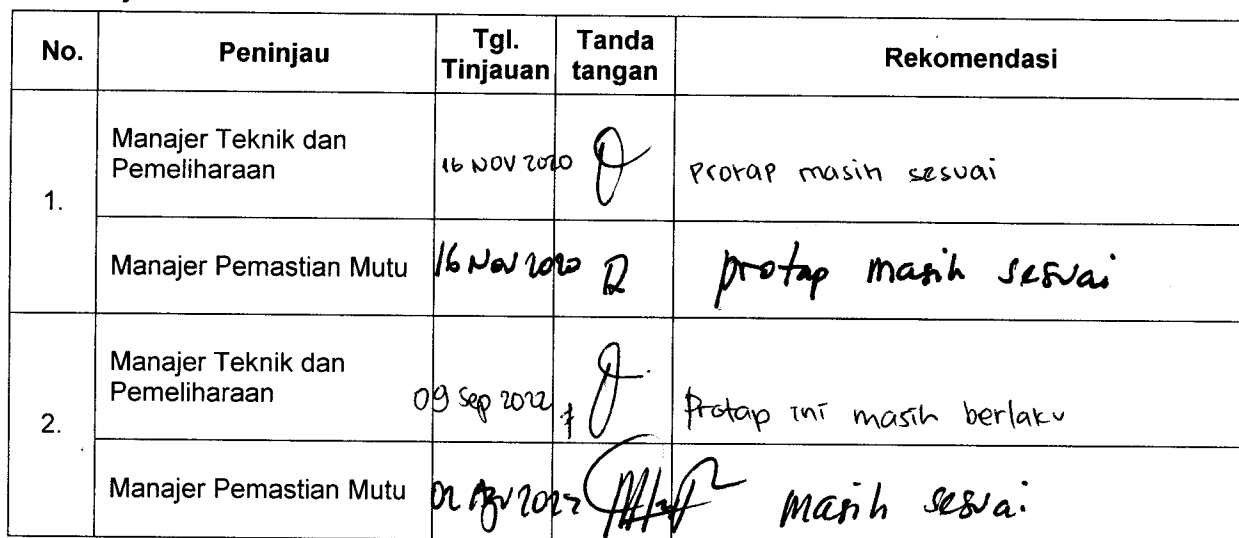 No. Peninjau Tgl. Tinjauan Tanda tangan Rekomendasi
1.
Manajer Teknik dan Pemeliharaan 16 NOV 2020 protap masih sesuai
Manajer Pemastian Mutu 16 Nov 2020 protap masih sesuai
2.
Manajer Teknik dan Pemeliharaan 09 Sep 2022 Protap ini masih berlaku
Manajer Pemastian Mutu 02 masih sesuai